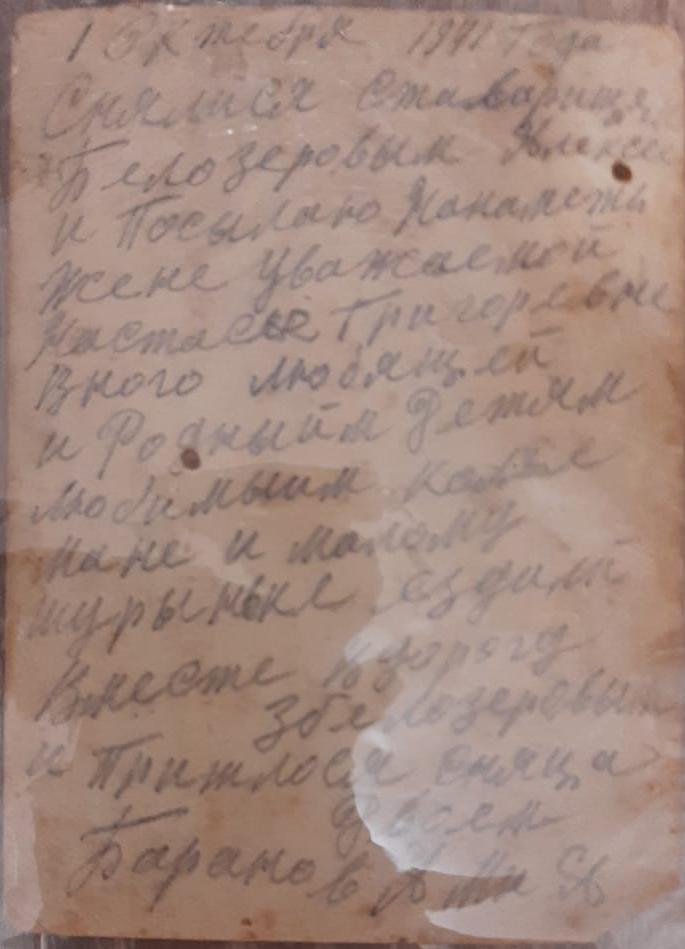 1 Октебря 1941 года
Снялися ставарищя
Белозеровым Алексее
и Посылаю Нанаметь
жене уважаемой
Настасье Григоревне
Вного любящей
и Родныйм детям
любимыим
Мане и малому
шурыньке ездили
Вместе
збелозеровым
и Пришлося сняца
двоем
Баранов